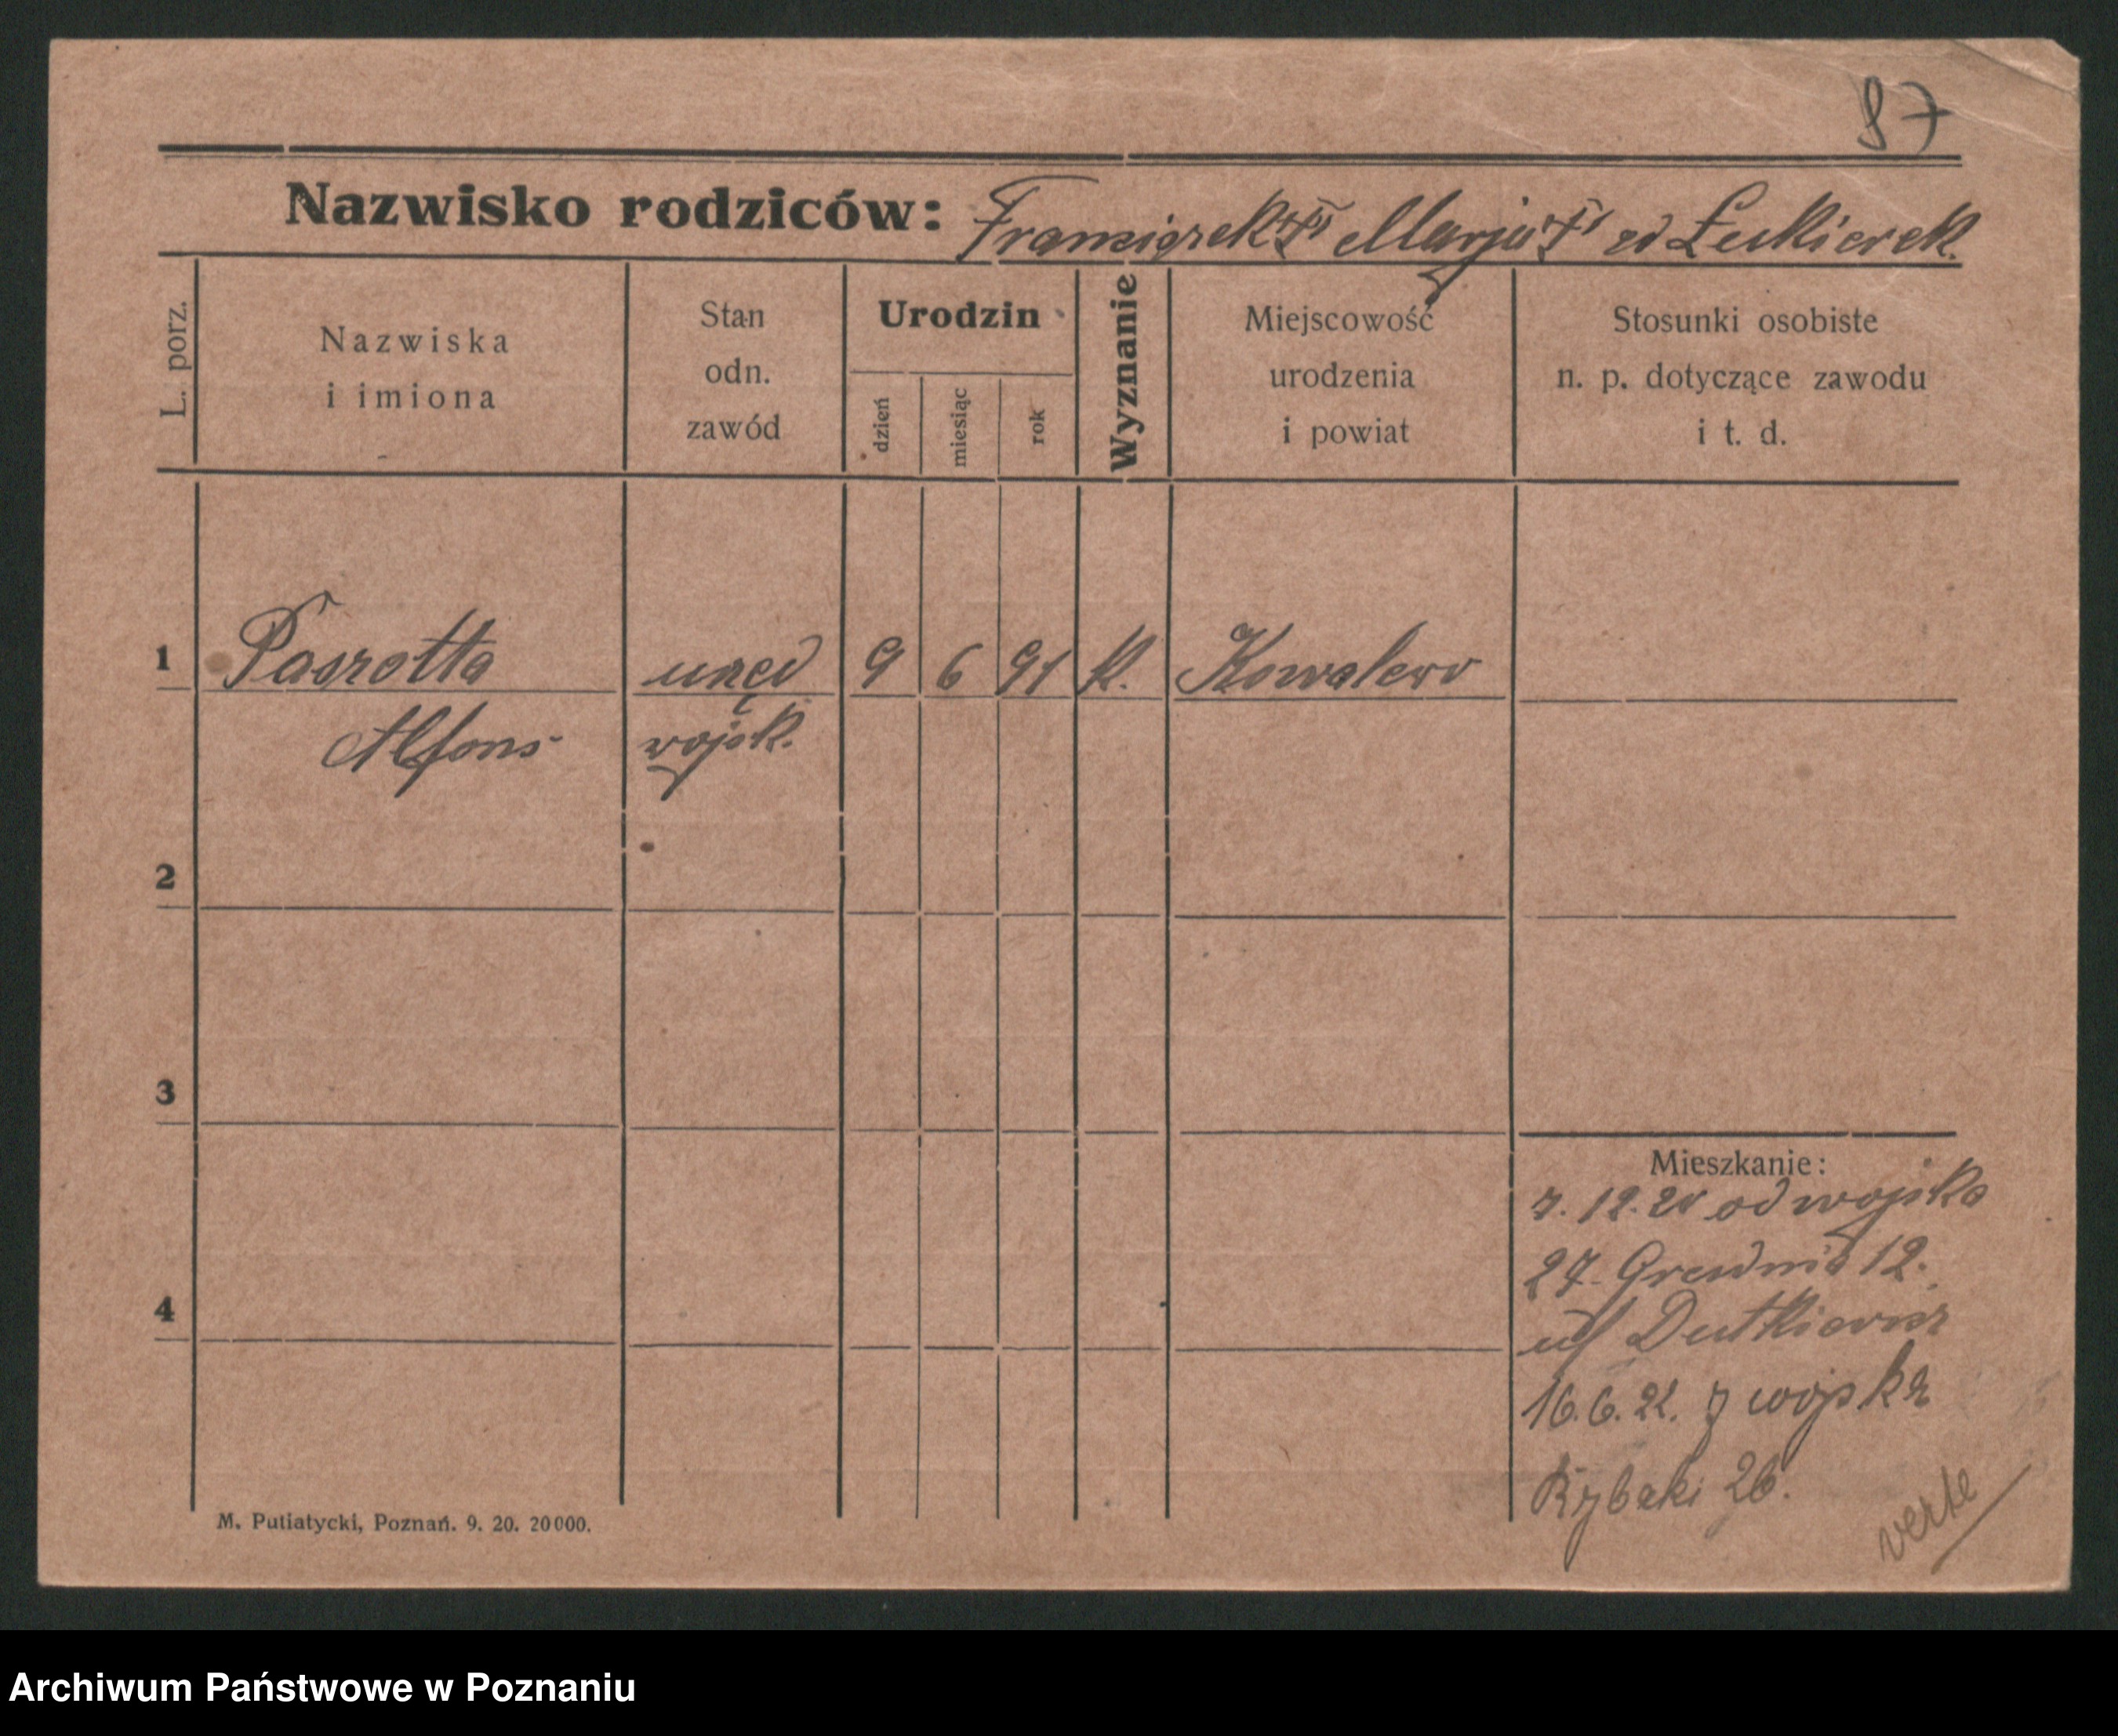 87
Nazwisko rodziców: Franciszek Marja zd Łukierek.
L. porz.
Nazwiska
i imiona
Stan
odn.
zawód
Urodzin
dzień
miesiąc
rok
Wyznanie
Miejscowość
urodzenia
i powiat
Stosunki osobiste
n. p. dotyczące zawodu
i t. d.
1 Paszotta urzęd 9 6 91 k. Kowalewo
Alfons wojsk.
2
3
Mieszkanie:
7. 12. 20 od wojska
27 Grudnia 12.
4
ul Dutkiewicz
16. 6. 21. z wojska
Rybaki 26.
verte
M. Putiatycki, Poznań. 9. 20. 20000.
Archiwum Państwowe w Poznaniu